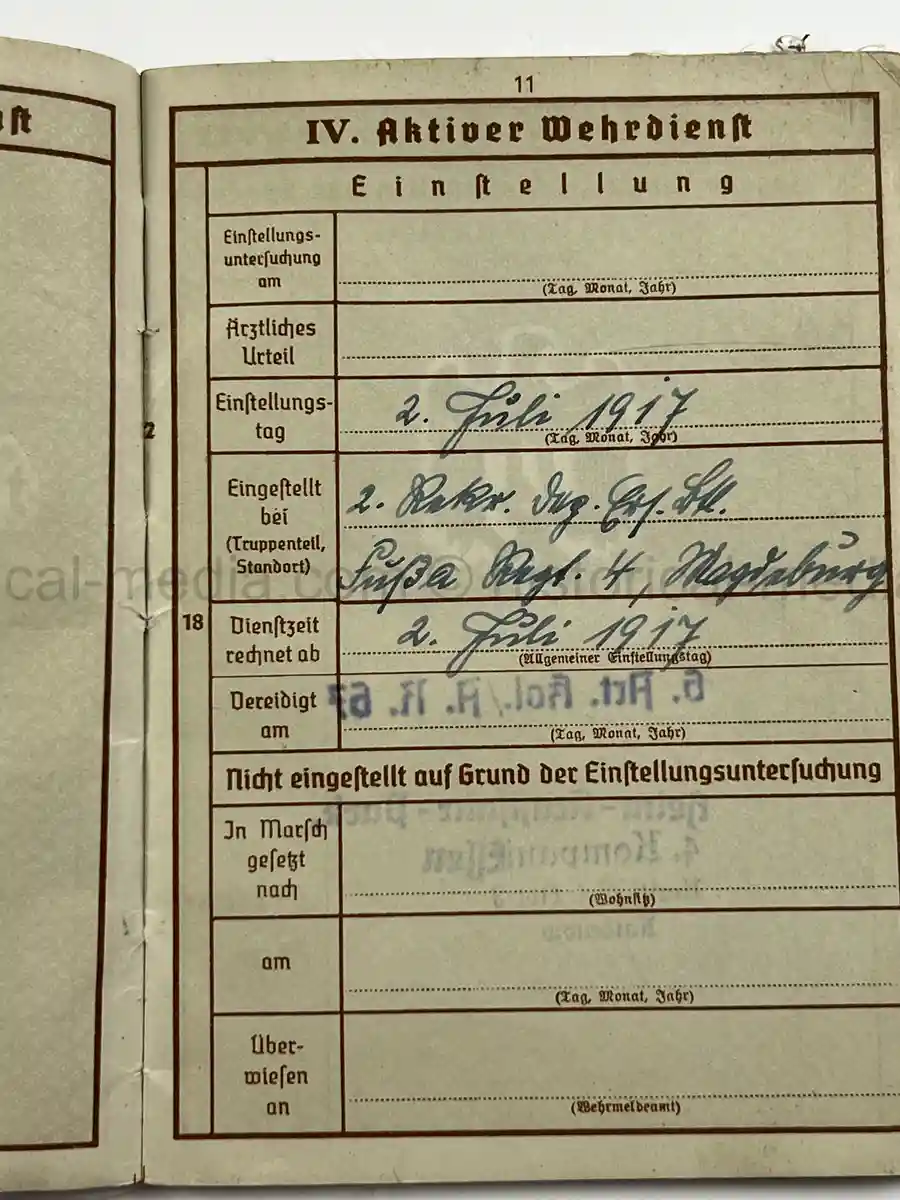 st
11
IV. Aktiver Wehrdienst
Einstellung
Einstellungs-
untersuchung
am
(Tag, Monat, Jahr)
Ärztliches
Urteil
Einstellungs-
tag
2. Juli 1917
(Tag, Monat, Jahr)
2
Eingestellt
bei
(Truppenteil,
Standort)
2. Rekr. Dep. Ers. Btl.
Fußa Regt. 4, Magdeburg
18
Dienstzeit
rechnet ab
2. Juli 1917
(Allgemeiner Einstellungstag)
Vereidigt
am
(Tag, Monat, Jahr)
Nicht eingestellt auf Grund der Einstellungsuntersuchung
In Marsch
gesetzt
nach
(Wohnsitz)
am
(Tag, Monat, Jahr)
Über-
wiesen
an
(Wehrmeldeamt)